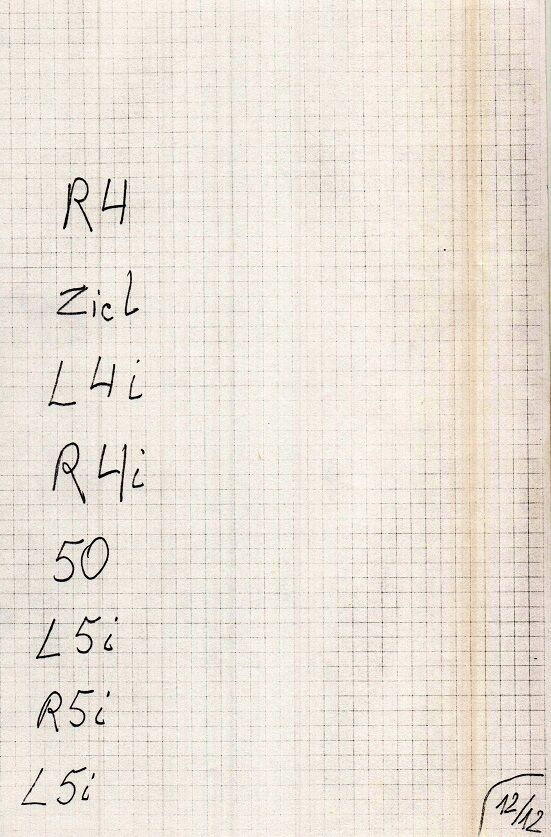 R4
Ziel
L4i
R4i
50
L5i
R5i
L5i
12/12